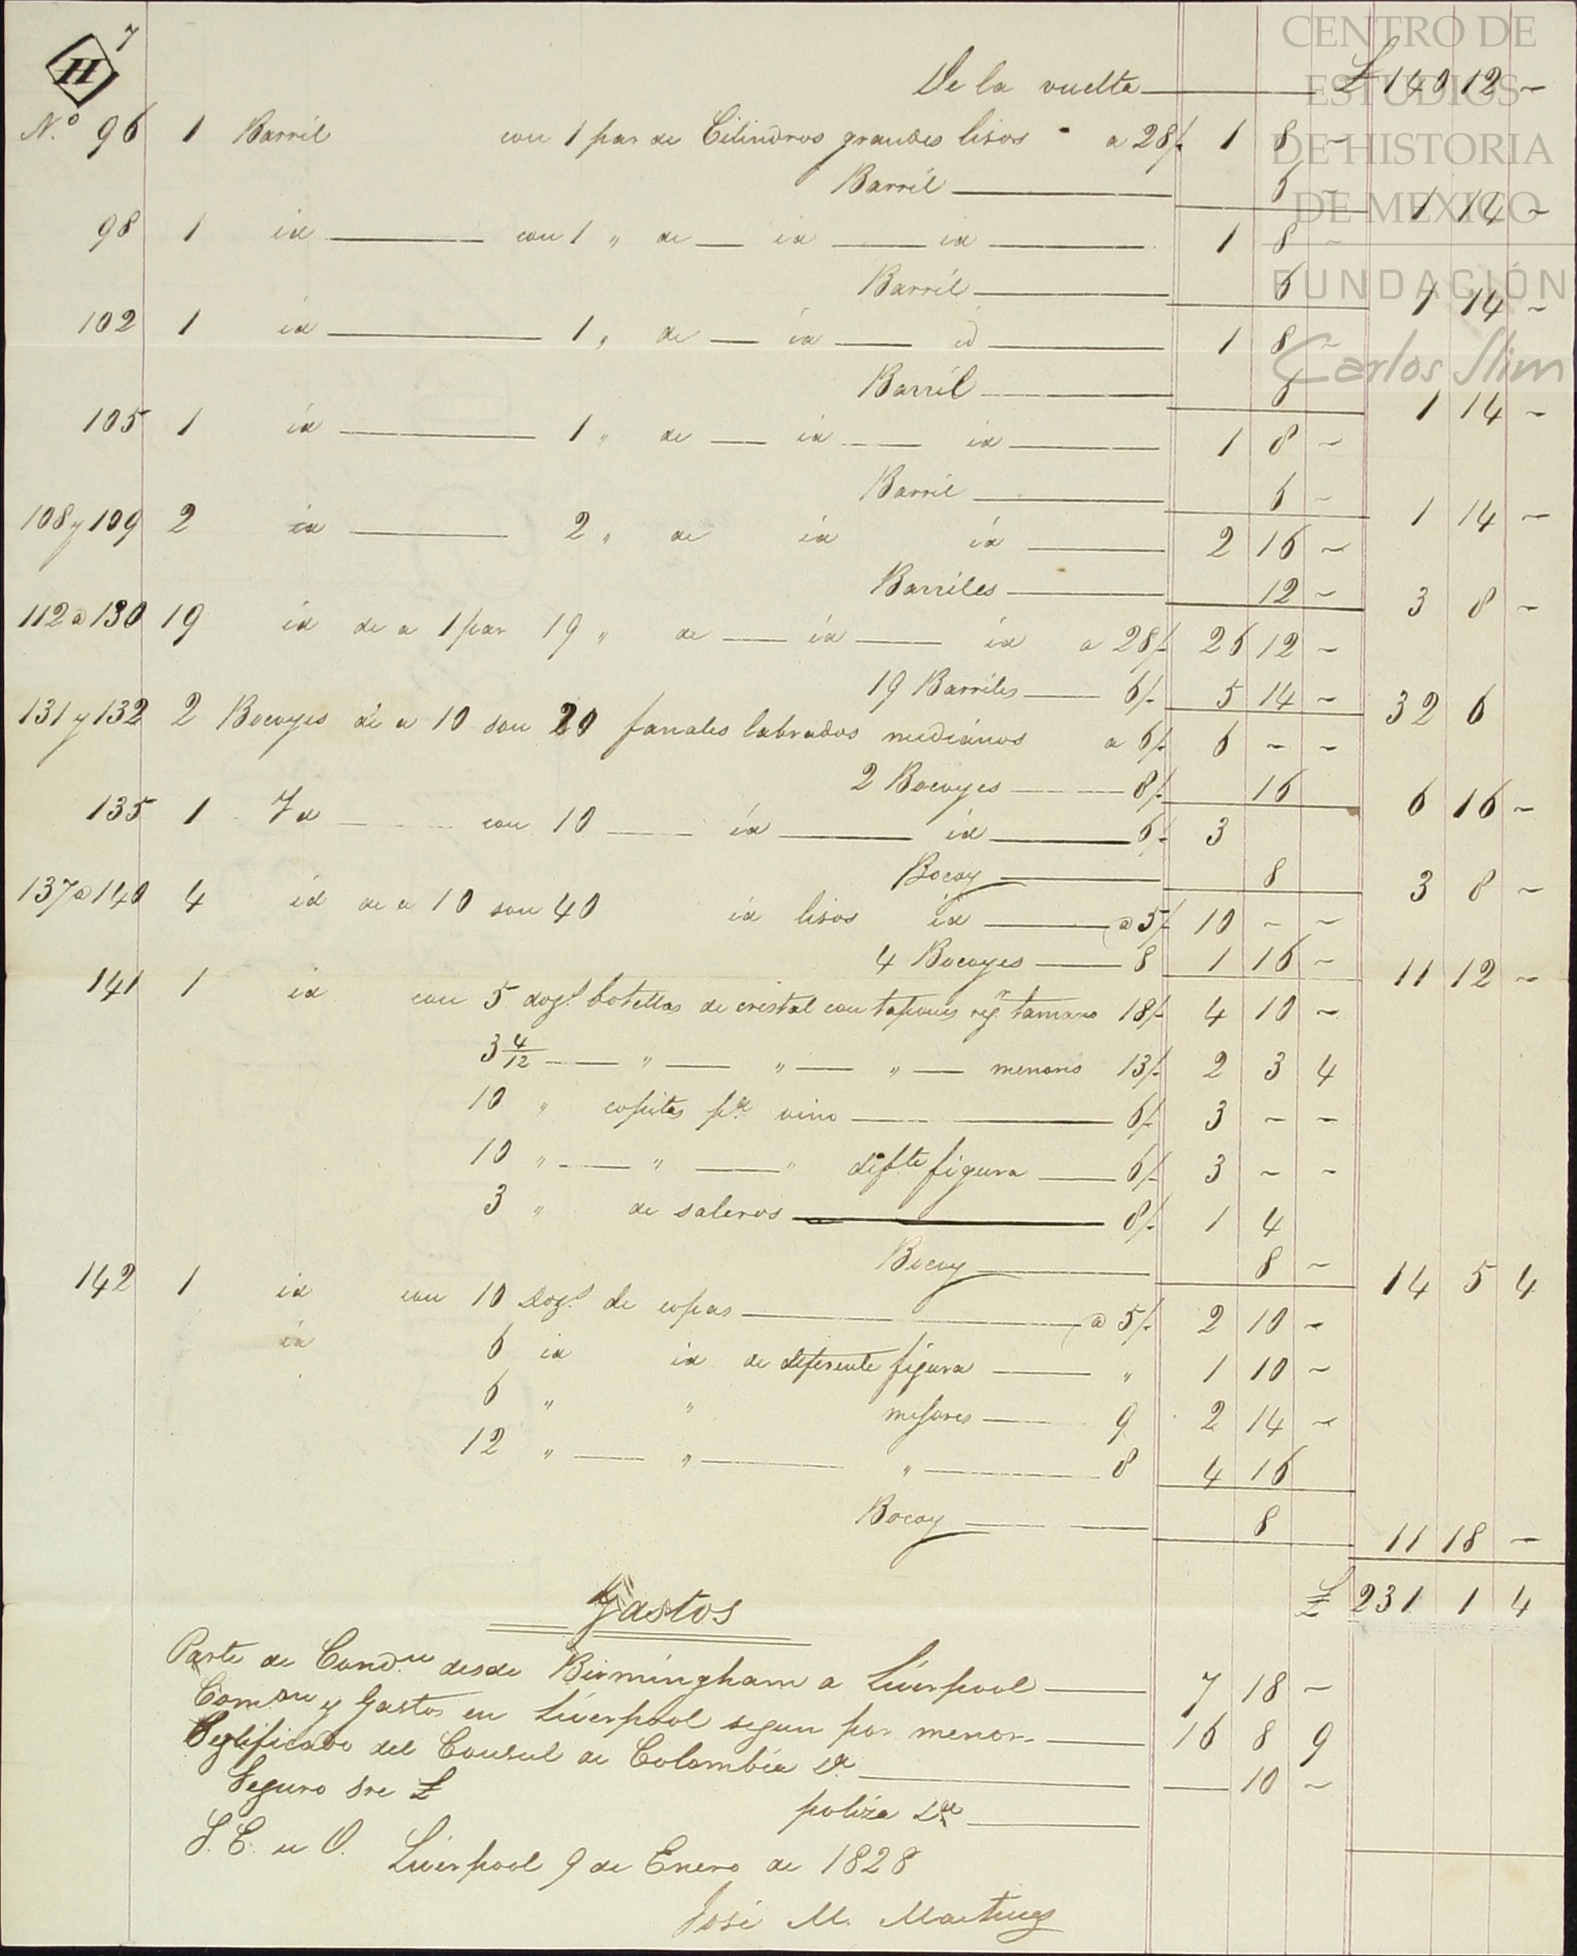 7
H
De la vuelta £ 140 12 ~
N.o 96 1 Barril con 1 par de Cilindros grandes lisos a 28/- 1 8 ~
Barril 6 ~ 1 14 ~
98 1 id con 1 " de id id 1 8 ~
Barril 6 1 14 ~
102 1 id 1 " de id id 1 8 ~
Barril 6 1 14 ~
105 1 id 1 " de id id 1 8 ~
Barril 6 ~ 1 14 ~
108 y 109 2 id 2 " de id id 2 16 ~
Barriles 12 ~ 3 8 ~
112 a 130 19 id de a 1 par 19 " de id id a 28/- 26 12 ~
19 Barriles 6/- 5 14 ~ 32 6
131 y 132 2 Bocoyes de a 10 son 20 fanales labrados medianos a 6/- 6 ~ ~
2 Bocoyes 8/- 16 6 16 ~
135 1 Id con 10 id id 6/- 3
Bocoy 8 3 8 ~
137 a 140 4 id de a 10 son 40 id lisos id a 5/- 10 ~ ~
4 Bocoyes 8 1 16 ~ 11 12 ~
141 1 id con 5 doz.s botellas de cristal con tapones reg.r tamano 18/- 4 10 ~
3 4/12 " " " menores 13/- 2 3 4
10 " copitas p.a vino 6/- 3 ~ ~
10 " " " dif.te figura 6/- 3 ~ ~
3 " de saleros 8/- 1 4
Bocoy 8 ~ 14 5 4
142 1 id con 10 Doz.s de copas a 5/- 2 10 ~
id 6 id id de diferente figura " 1 10 ~
6 " " mejores 9 2 14 ~
12 " " " 8 4 16
Bocoy 8 11 18 ~
£ 231 1 4
Gastos
Parte de Cond.on desde Birmingham a Liverpool 7 18 ~
Com.on y Gastos en Liverpool segun por menor 16 8 9
Certificado del Consul de Colombia 10 ~
Seguro sre £ poliza
S. E. u O. Liverpool 9 de Enero de 1828
José M. Martinez
CENTRO DE
ESTUDIOS
DE HISTORIA
DE MEXICO
FUNDACIÓN
Carlos Slim